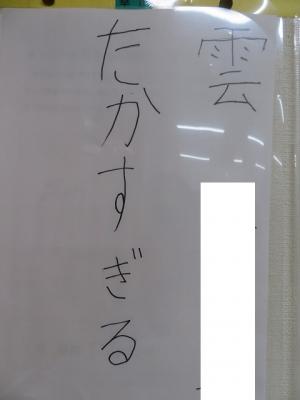 雲
たかすぎる